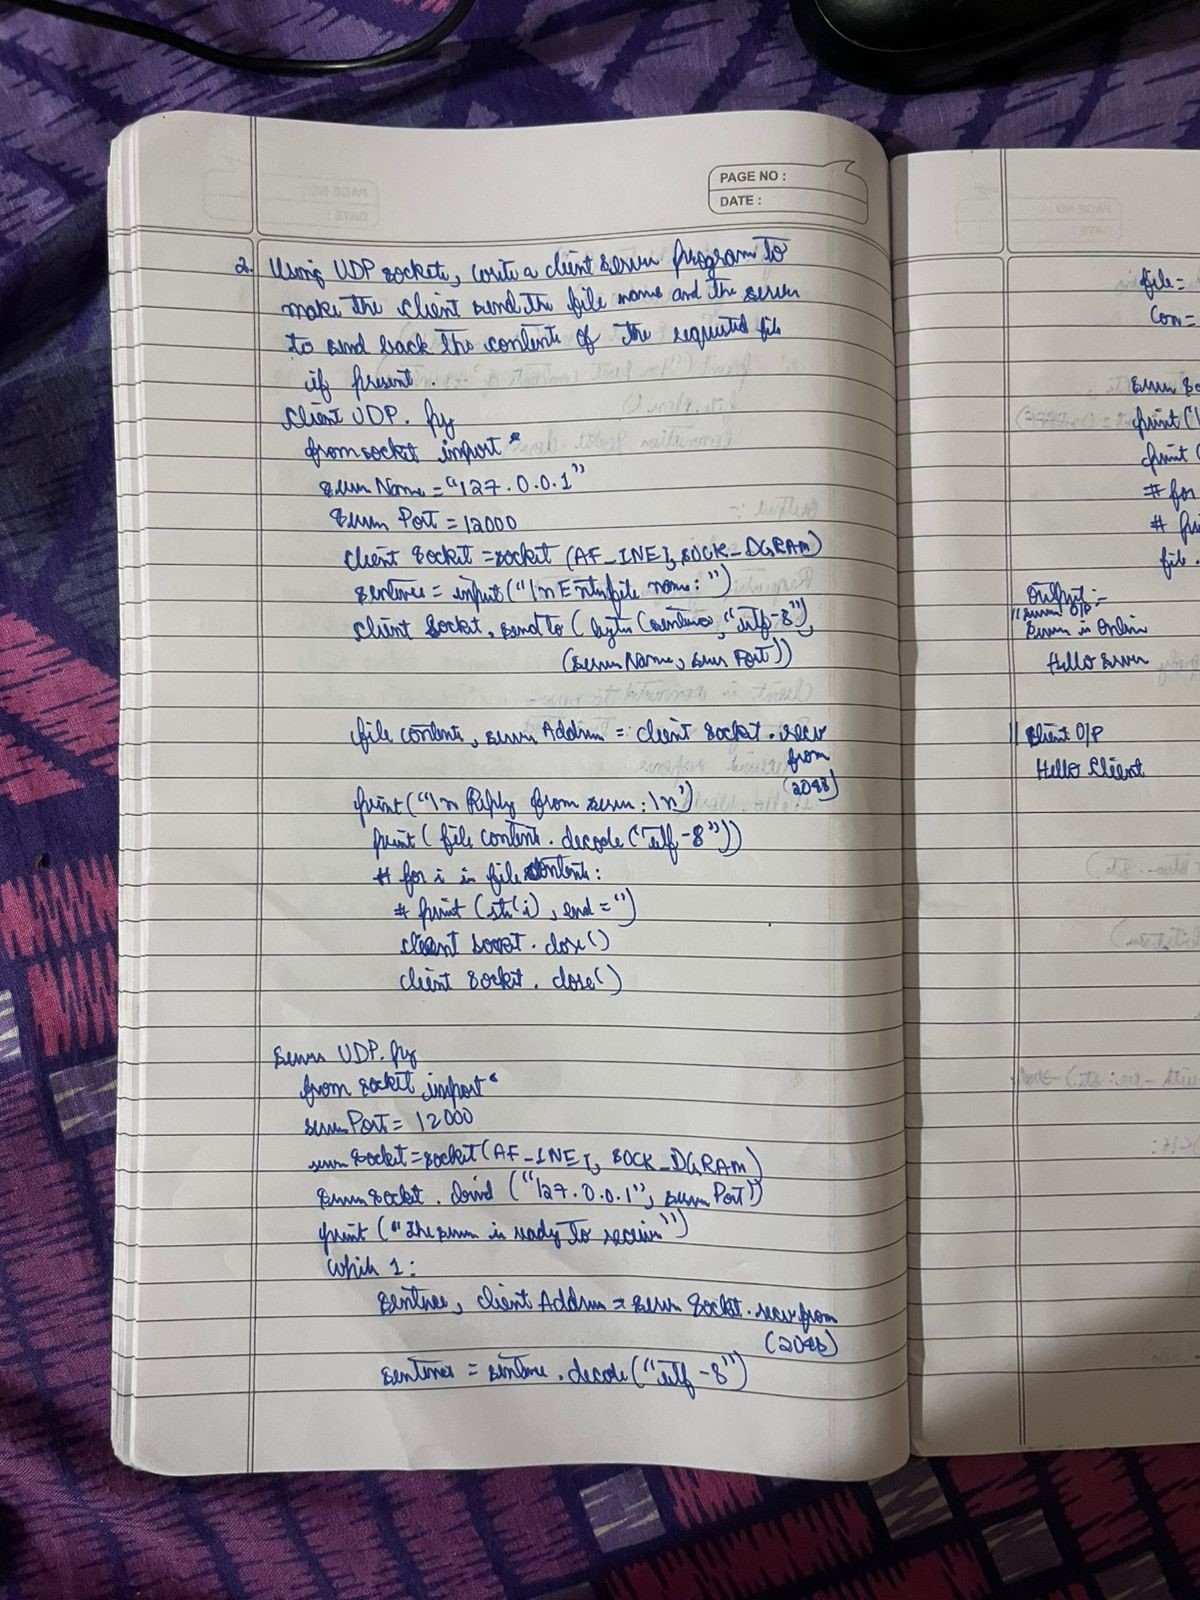 PAGE NO :
DATE :
2. Using UDP sockets, write a client server program to
make the client send the file name and the server
to send back the contents of the requested file
if present.
Client UDP. py
from socket import *
server Name = "127.0.0.1"
server Port = 12000
client socket = socket (AF_INET, SOCK_DGRAM)
sentence = input ("\n Enter file name: ")
client Socket. send to (bytes (sentence, "utf-8"),
(server Name, server Port))
file contents, server Address = client socket. recv
from
(2048)
print ("\n Reply from server: \n')
print ( file content. decode ("utf-8"))
# for i in file contents:
# print (str(i), end = '')
client socket. close()
client socket. close()
Server UDP. py
from socket import *
server Port = 12000
server socket = socket (AF_INET, SOCK_DGRAM)
server socket. bind ("127.0.0.1", server Port))
print ("The server is ready to receive")
while 1:
sentence, client Address = server Socket. recv from
(2048)
sentence = sentence. decode ("utf-8")
file =
con =
print (
print (
# for
#
file.
Output :-
// server O/P
Server is Online
Hello server
// Client O/P
Hello Client